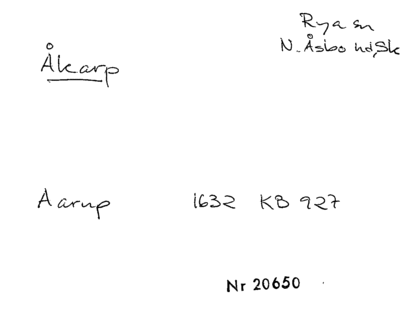 Rya sn
N. Åsbo hd, Sk
Åkarp
Aarup 1632 KB 927
Nr 20650